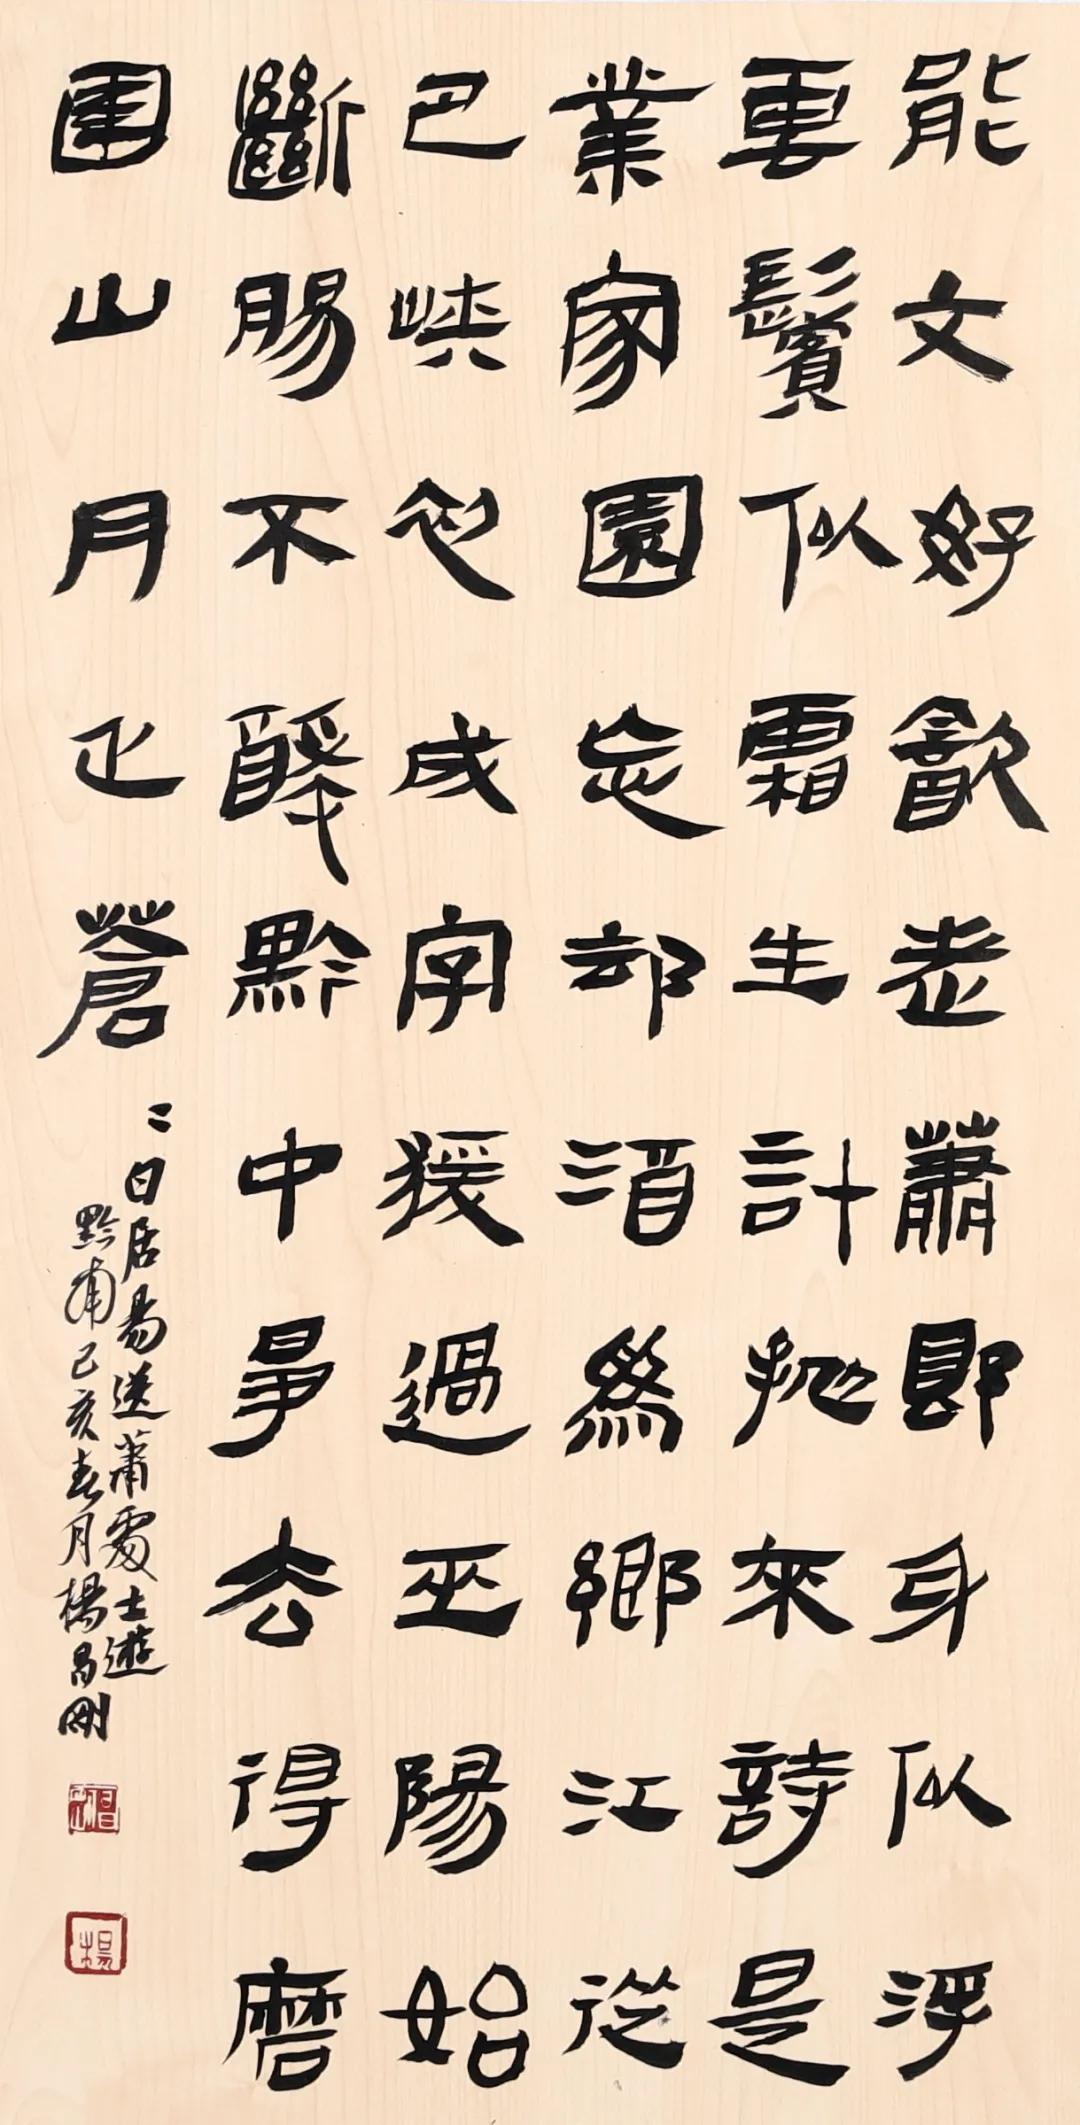 能文好飲老蕭郎身似浮
雲鬢似霜生計抛來詩是
業家園忘却酒為鄉江從
巴峽初成字猨過巫陽始
斷腸不醉黔中爭去得磨
圍山月正蒼〻
白居易送蕭處士遊
黔南己亥春月楊昌剛
楊